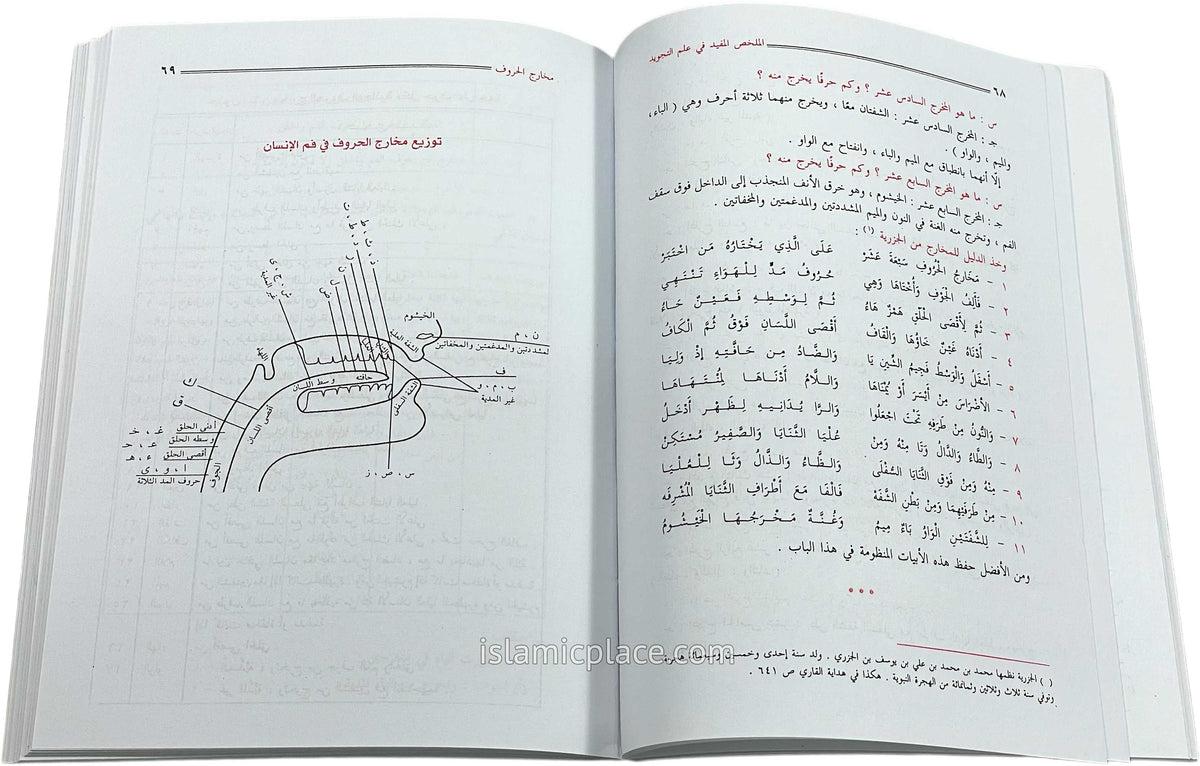 ٦٨ الملخص المفيد في علم التجويد
س : ما هو المخرج السادس عشر ؟ وكم حرفًا يخرج منه ؟
جـ : المخرج السادس عشر : الشفتان معًا ، ويخرج منهما ثلاثة أحرف وهي ( الباء ،
والميم ، والواو ) .
إلّا أنهما بانطباق مع الميم والباء ، وانفتاح مع الواو .
س : ما هو المخرج السابع عشر ؟ وكم حرفًا يخرج منه ؟
جـ : المخرج السابع عشر : الخيشوم ، وهو خرق الأنف المنجذب إلى الداخل فوق سقف
الفم ، وتخرج منه الغنة في النون والميم المشددتين والمدغمتين والمخفاتين .
وخذ الدليل للمخارج من الجزرية (١) :
١ - مَخَارِجُ الحُرُوفِ سَبْعَةَ عَشَرْ عَلَى الَّذِي يَخْتَارُهُ مَنِ اخْتَبَرْ
٢ - فَأَلِفُ الجَوْفِ وَأُخْتَاهَا وَهِي حُرُوفُ مَدٍّ لِلْهَوَاءِ تَنْتَهِي
٣ - ثُمَّ لِأَقْصَى الحَلْقِ هَمْزٌ هَاءُ ثُمَّ لِوَسْطِهِ فَعَيْنٌ حَاءُ
٤ - أَدْنَاهُ غَيْنٌ خَاؤُهَا وَالْقَافُ أَقْصَى اللِّسَانِ فَوْقُ ثُمَّ الْكَافُ
٥ - أَسْفَلُ وَالْوَسْطُ فَجِيمُ الشِّينُ يَا وَالضَّادُ مِنْ حَافَتِهِ إِذْ وَلِيَا
٦ - الأَضْرَاسَ مِنْ أَيْسَرَ أَوْ يُمْنَاهَا وَاللَّامُ أَدْنَاهَا لِمُنْتَهَاهَا
٧ - وَالنُّونُ مِنْ طَرَفِهِ تَحْتُ اجْعَلُوا وَالرَّا يُدَانِيهِ لِظَهْرٍ أَدْخَلُ
٨ - وَالطَّاءُ وَالدَّالُ وَتَا مِنْهُ وَمِنْ عُلْيَا الثَّنَايَا وَالصَّفِيرُ مُسْتَكِنْ
٩ - مِنْهُ وَمِنْ فَوْقِ الثَّنَايَا السُّفْلَى وَالظَّاءُ وَالذَّالُ وَثَا لِلْعُلْيَا
١٠ - مِنْ طَرَفَيْهِمَا وَمِنْ بَطْنِ الشَّفَهْ فَالْفَا مَعَ أَطْرَافِ الثَّنَايَا الْمُشْرِفَهْ
١١ - لِلشَّفَتَيْنِ الْوَاوُ بَاءٌ مِيمُ وَغُنَّةٌ مَخْرَجُهَا الْخَيْشُومُ
ومن الأفضل حفظ هذه الأبيات المنظومة في هذا الباب .
( ) الجزرية نظمها محمد بن محمد بن علي بن يوسف بن الجزري . ولد سنة إحدى وخمسين وسبعمائة هجرية
وتوفي سنة ثلاث وثلاثين وثمانمائة من الهجرة النبوية . هكذا في هداية القاري ص ٦٤١ .
مخارج الحروف ٦٩
توزيع مخارج الحروف في فم الإنسان
ش ، ج ، ي
غير المدية
ض
ل
ن
ر
د ، ط ، ت
ذ ، ث ، ظ
الخيشوم
ن ، م
المشددتين والمدغمتين والمخفاتين
ف
ب ، م ، و
غير المدية
الشفة العليا
الشفة السفلى
اللهاة
حافته
وسط اللسان
أقصى اللسان
ك
ق
أدنى الحلق غ ، خـ
وسطه الحلق ع ، حـ
أقصى الحلق ء ، هـ
ا ، و ، ي
حروف المد الثلاثة
الجوف
س ، ص ، ز
islamicplace.com